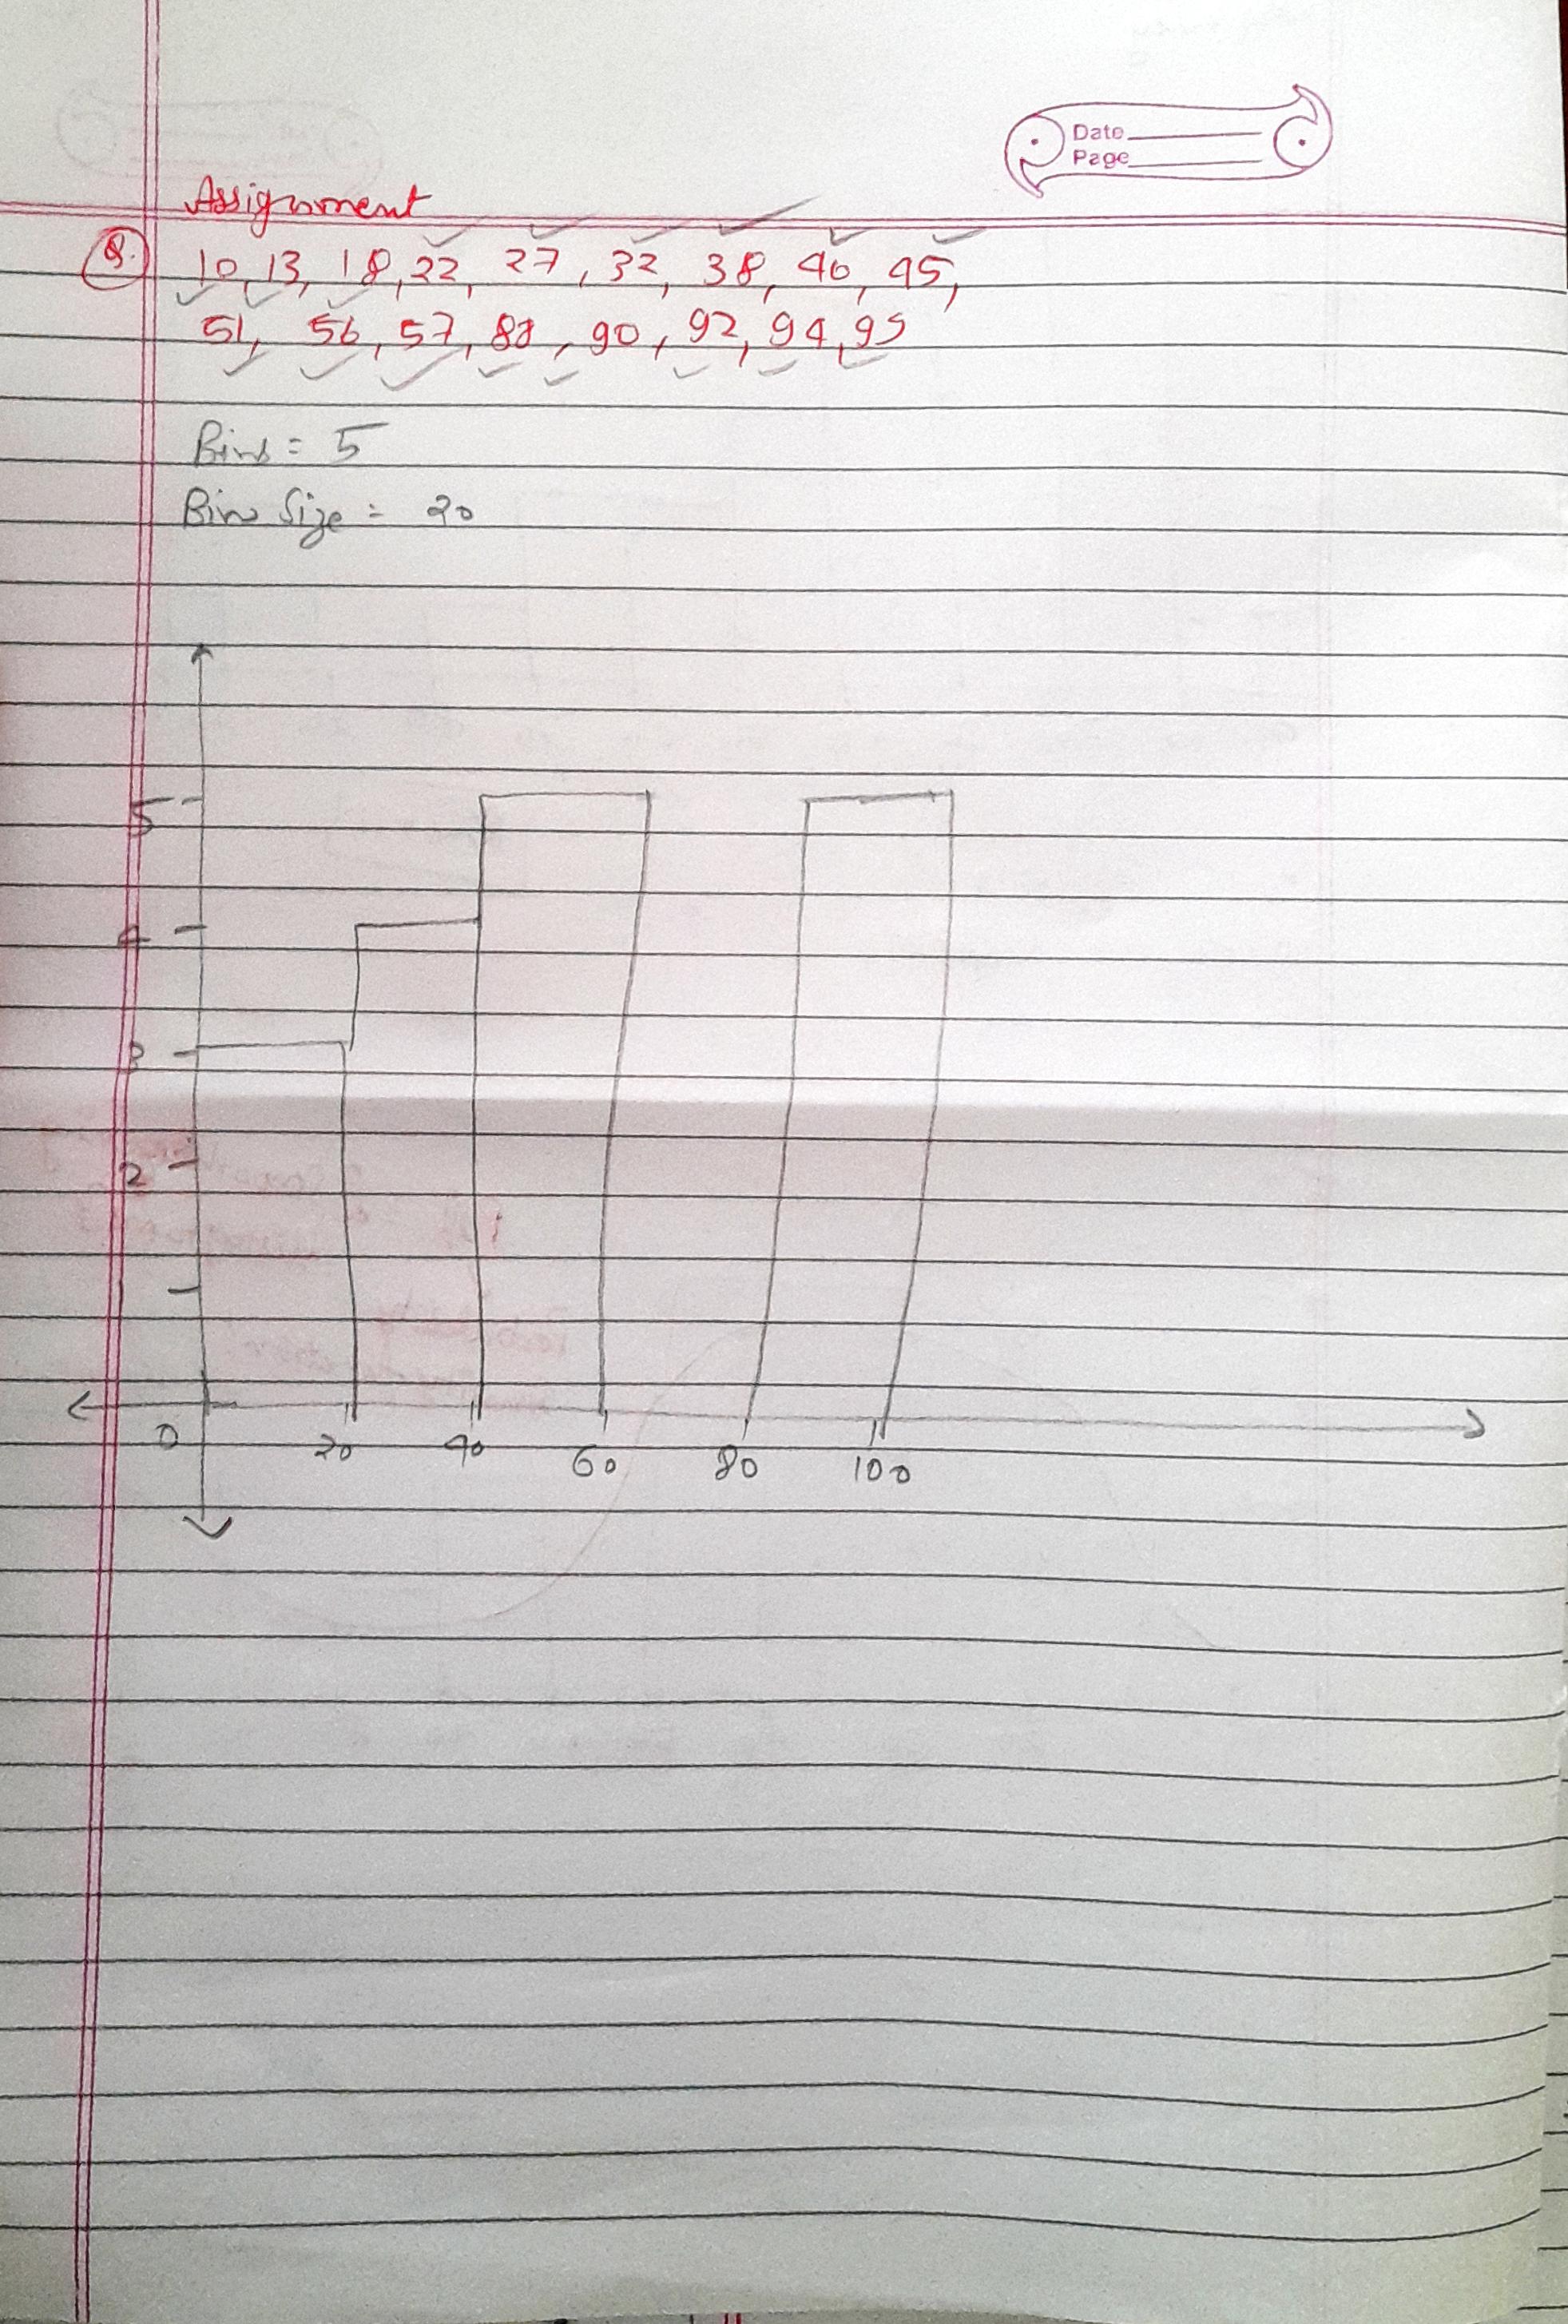 Date
Page
Assignment
Q. 10, 13, 18, 22, 27, 32, 38, 40, 45,
51, 56, 57, 88, 90, 92, 94, 99
Bins = 5
Bin Size = 20
5
4
3
2
0 20 40 60 80 100